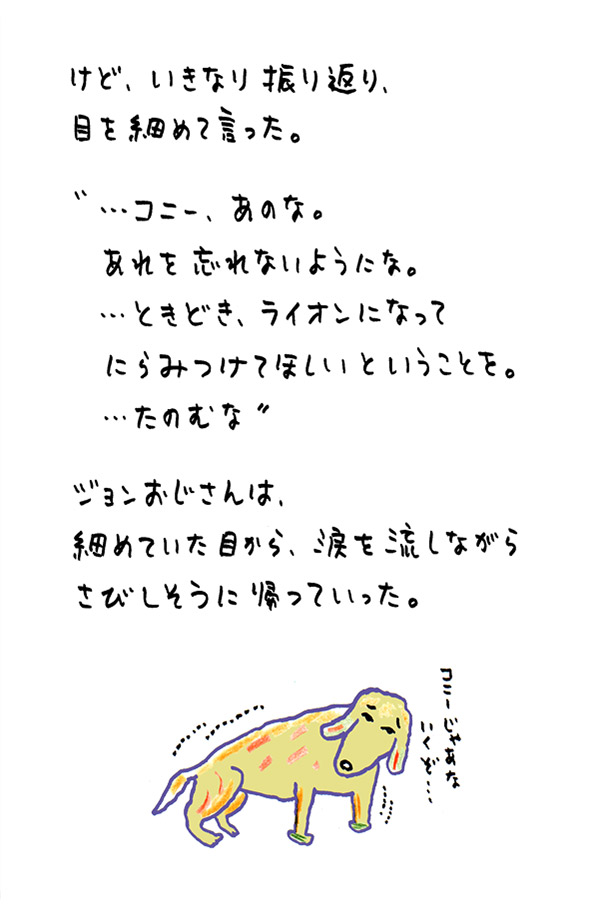 けど、いきなり振り返り、
目を細めて言った。
〝…コニー、あのな。
あれを忘れないようにな。
…ときどき、ライオンになって
にらみつけてほしいということを。
…たのむな〟
ジョンおじさんは、
細めていた目から、涙を流しながら
さびしそうに帰っていった。
コニーじゃあな
いくぞ…